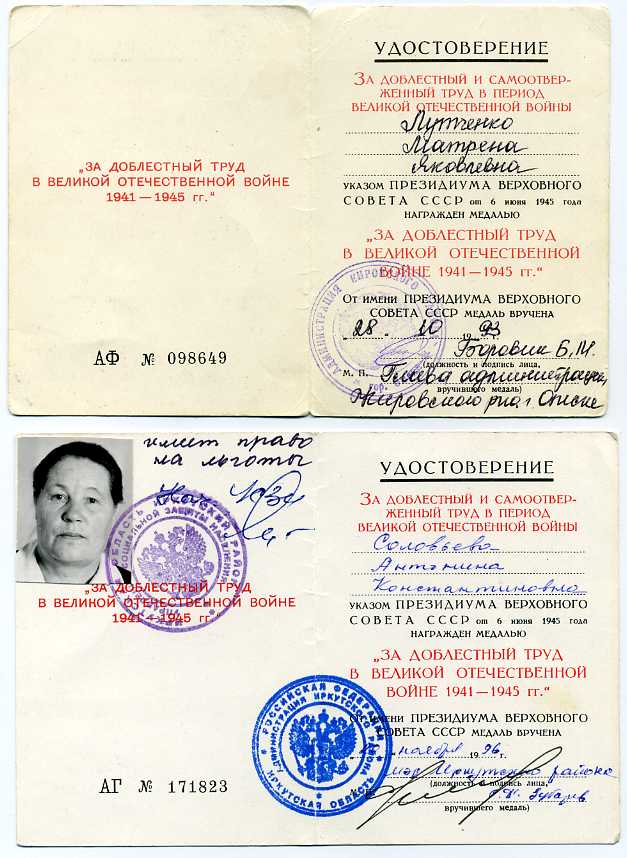 „ЗА ДОБЛЕСТНЫЙ ТРУД
В ВЕЛИКОЙ ОТЕЧЕСТВЕННОЙ ВОЙНЕ
1941—1945 гг.“
АФ № 098649
УДОСТОВЕРЕНИЕ
ЗА ДОБЛЕСТНЫЙ И САМООТВЕР-
ЖЕННЫЙ ТРУД В ПЕРИОД
ВЕЛИКОЙ ОТЕЧЕСТВЕННОЙ ВОЙНЫ
Лутченко
Матрена
Яковлевна
УКАЗОМ ПРЕЗИДИУМА ВЕРХОВНОГО
СОВЕТА СССР от 6 июня 1945 года
НАГРАЖДЕН МЕДАЛЬЮ
„ЗА ДОБЛЕСТНЫЙ ТРУД
В ВЕЛИКОЙ ОТЕЧЕСТВЕННОЙ
ВОЙНЕ 1941—1945 гг.“
От имени ПРЕЗИДИУМА ВЕРХОВНОГО
СОВЕТА СССР МЕДАЛЬ ВРУЧЕНА
28. 10 1993
Боровик Б.И.
(должность и подпись лица,
М. П. Глава администрации
вручившего медаль)
Кировского г. Омска
АДМИНИСТРАЦИЯ КИРОВСКОГО
имеет право
на льготы
СОЦИАЛЬНОЙ ЗАЩИТЫ НАСЕЛЕНИЯ
„ЗА ДОБЛЕСТНЫЙ ТРУД
В ВЕЛИКОЙ ОТЕЧЕСТВЕННОЙ ВОЙНЕ
1941—1945 гг.“
РОССИЙСКАЯ ФЕДЕРАЦИЯ
АДМИНИСТРАЦИЯ ИРКУТСКОГО РАЙОНА
ИРКУТСКАЯ ОБЛАСТЬ
АГ № 171823
УДОСТОВЕРЕНИЕ
ЗА ДОБЛЕСТНЫЙ И САМООТВЕР-
ЖЕННЫЙ ТРУД В ПЕРИОД
ВЕЛИКОЙ ОТЕЧЕСТВЕННОЙ ВОЙНЫ
Соловьева
Антонина
Константиновна
УКАЗОМ ПРЕЗИДИУМА ВЕРХОВНОГО
СОВЕТА СССР от 6 июня 1945 года
НАГРАЖДЕН МЕДАЛЬЮ
„ЗА ДОБЛЕСТНЫЙ ТРУД
В ВЕЛИКОЙ ОТЕЧЕСТВЕННОЙ
ВОЙНЕ 1941—1945 гг.“
От имени ПРЕЗИДИУМА ВЕРХОВНОГО
СОВЕТА СССР МЕДАЛЬ ВРУЧЕНА
ноября 1996
мэр Иркутского района
(должность и подпись лица,
Зубарев
вручившего медаль)